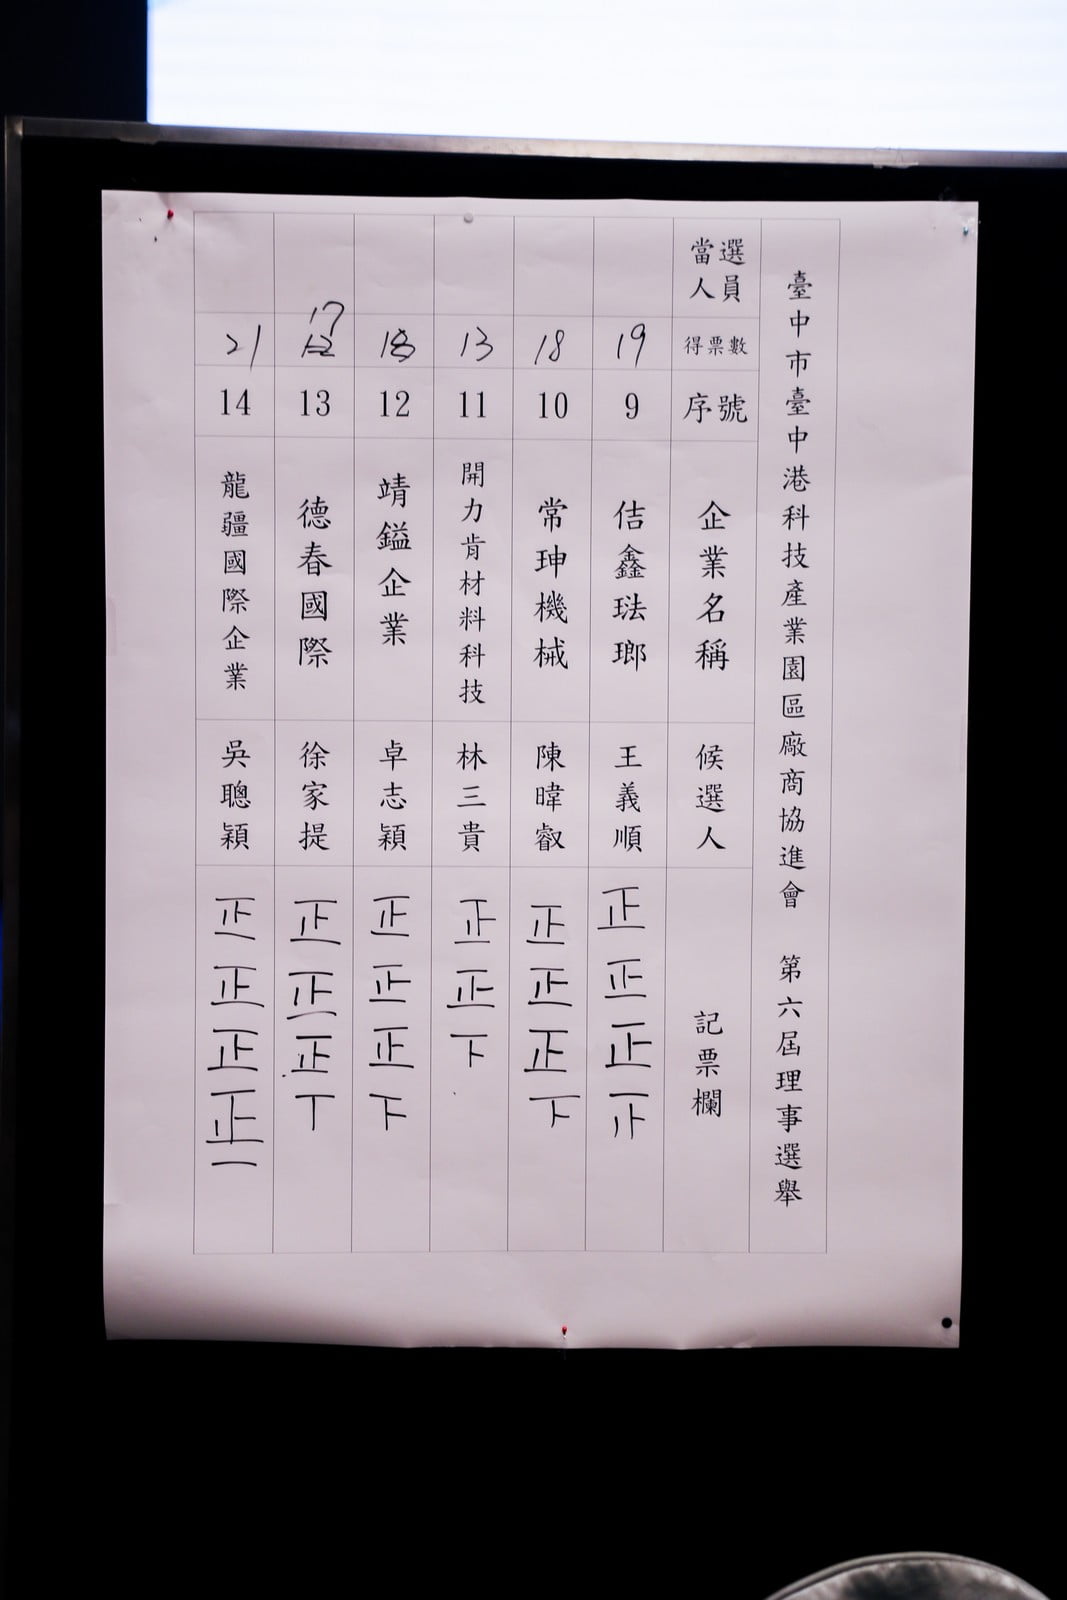 臺中市臺中港科技產業園區廠商協進會 第六屆理事選舉
當選人員
得票數
序號
企業名稱
候選人
記票欄
19
9
佶鑫琺瑯
王義順
正正正
18
10
常珅機械
陳暐叡
正正正下
13
11
開力肯材料科技
林三貴
正正下
18
12
靖鎰企業
卓志穎
正正正下
17
13
德春國際
徐家提
正正正丅
21
14
龍疆國際企業
吳聰穎
正正正正一